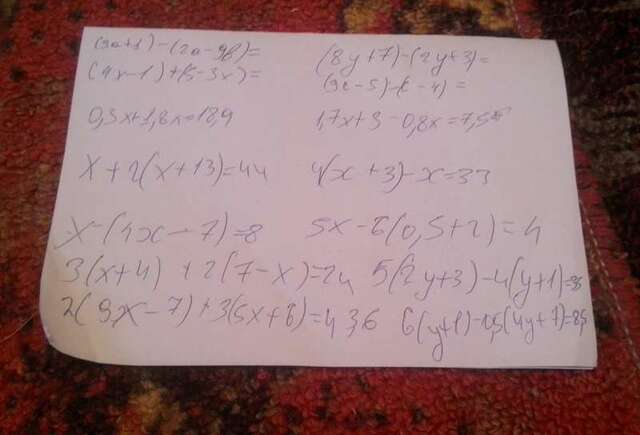 (3a+1)-(2a-9b)= (8y+7)-(2y+3)=
(4x-1)+(5-3x)= (9c-5)-(c-4)=
0,3x+1,8x=18,9 1,7x+3-0,8x=7,5
x+2(x+13)=44 4(x+3)-x=33
x-(4x-7)=8 5x-6(0,5+2)=4
3(x+4)+2(7-x)=24 5(2y+3)-4(y+1)=8
2(9x-7)+3(5x+6)=43,6 6(y+1)-0,5(4y+7)=8,5